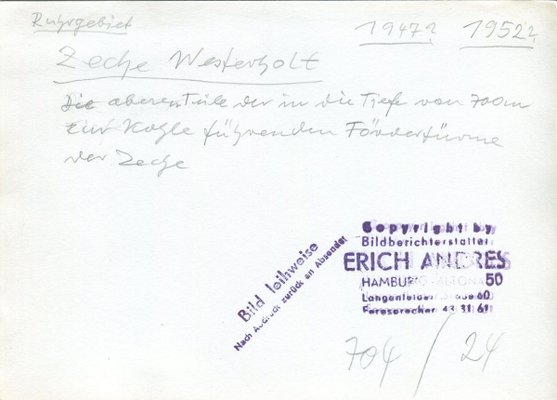 Ruhrgebiet
1947? 1952?
Zeche Westerholt
Die oberen Teile der in die Tiefe von 700m
zur Kohle führenden Fördertürme
der Zeche
Bild leihweise
Nach Abdruck zurück an Absender
Copyright by
Bildberichterstatter
ERICH ANDRES
HAMBURG-ALTONA 50
Fernsprecher 43 31 61
704/24